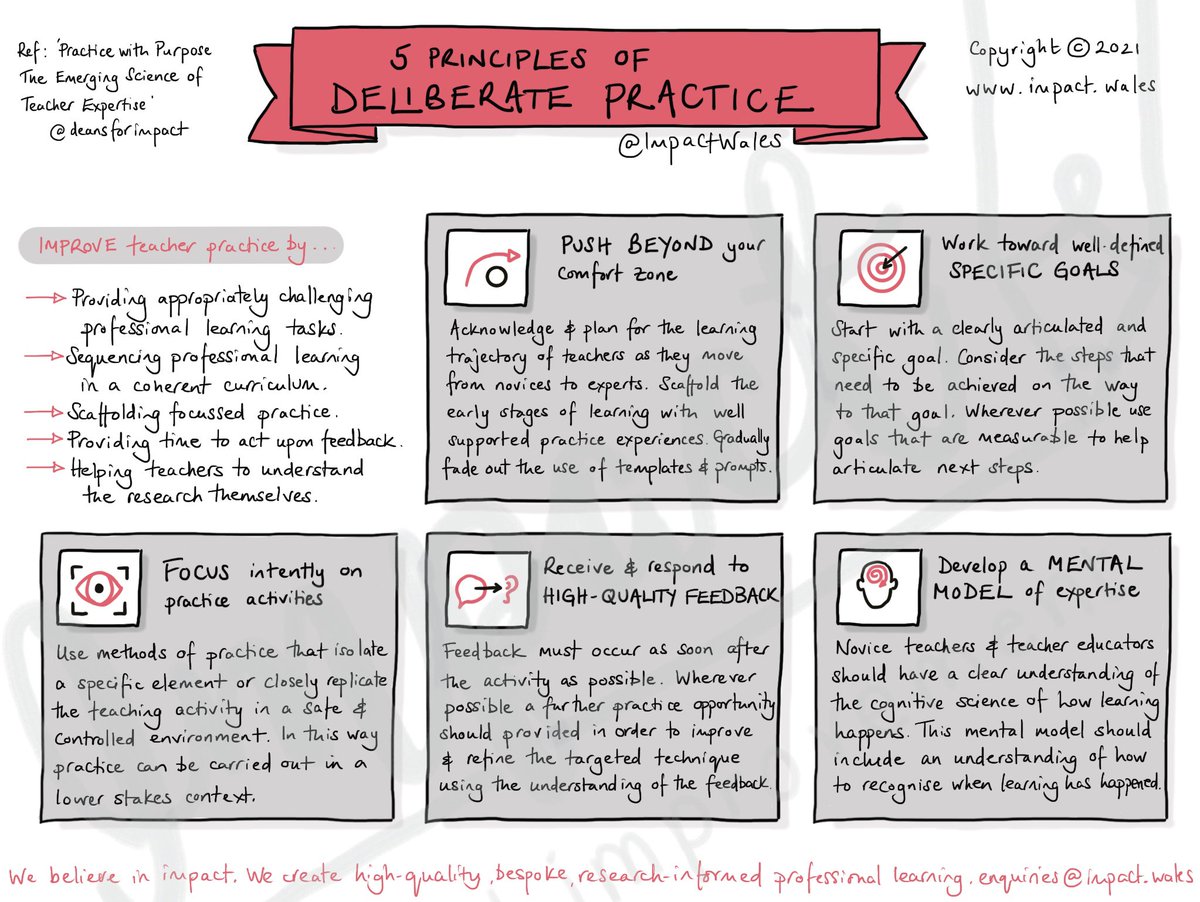 Ref: 'Practice with Purpose
The Emerging Science of
Teacher Expertise'
@deansforimpact
5 PRINCIPLES OF
DELIBERATE PRACTICE
@ImpactWales
Copyright © 2021
www.impact.wales
IMPROVE teacher practice by...
Providing appropriately challenging
professional learning tasks.
Sequencing professional learning
in a coherent curriculum.
Scaffolding focussed practice.
Providing time to act upon feedback.
Helping teachers to understand
the research themselves.
PUSH BEYOND your
comfort zone
Acknowledge & plan for the learning
trajectory of teachers as they move
from novices to experts. Scaffold the
early stages of learning with well
supported practice experiences. Gradually
fade out the use of templates & prompts.
Work toward well-defined
SPECIFIC GOALS
Start with a clearly articulated and
specific goal. Consider the steps that
need to be achieved on the way
to that goal. Wherever possible use
goals that are measurable to help
articulate next steps.
FOCUS intently on
practice activities
Use methods of practice that isolate
a specific element or closely replicate
the teaching activity in a safe &
controlled environment. In this way
practice can be carried out in a
lower stakes context.
Receive & respond to
HIGH-QUALITY FEEDBACK
Feedback must occur as soon after
the activity as possible. Wherever
possible a further practice opportunity
should provided in order to improve
& refine the targeted technique
using the understanding of the feedback.
Develop a MENTAL
MODEL of expertise
Novice teachers & teacher educators
should have a clear understanding of
the cognitive science of how learning
happens. This mental model should
include an understanding of how
to recognise when learning has happened.
We believe in impact. We create high-quality, bespoke, research-informed professional learning. enquiries@impact.wales